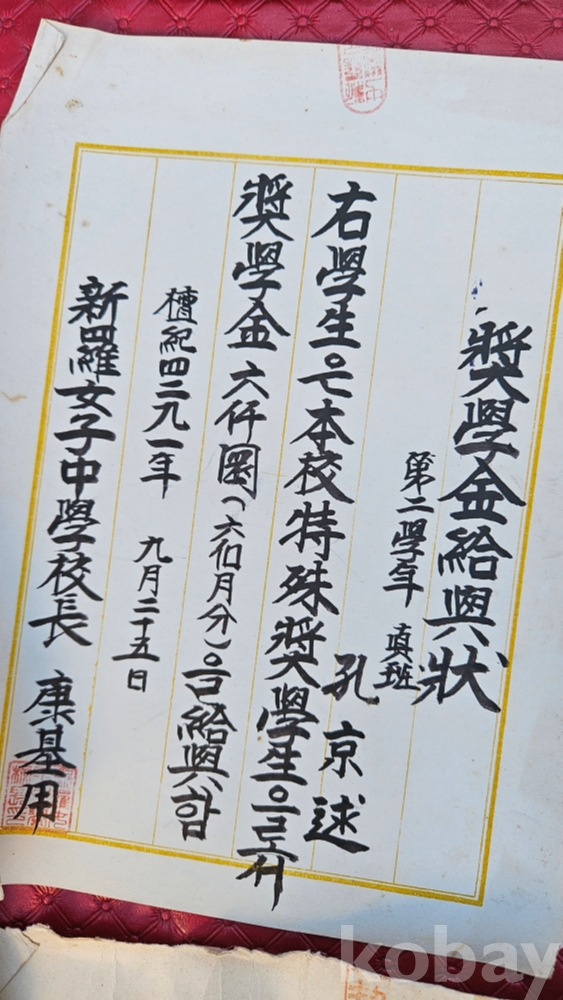 奬學金給與狀
第二學年 真班
孔京述
右學生은本校特殊奬學生으로서
奬學金六仟圜(六個月分)을給與함
檀紀四二九一年 九月二十五日
新羅女子中學校長 康基用
kobay